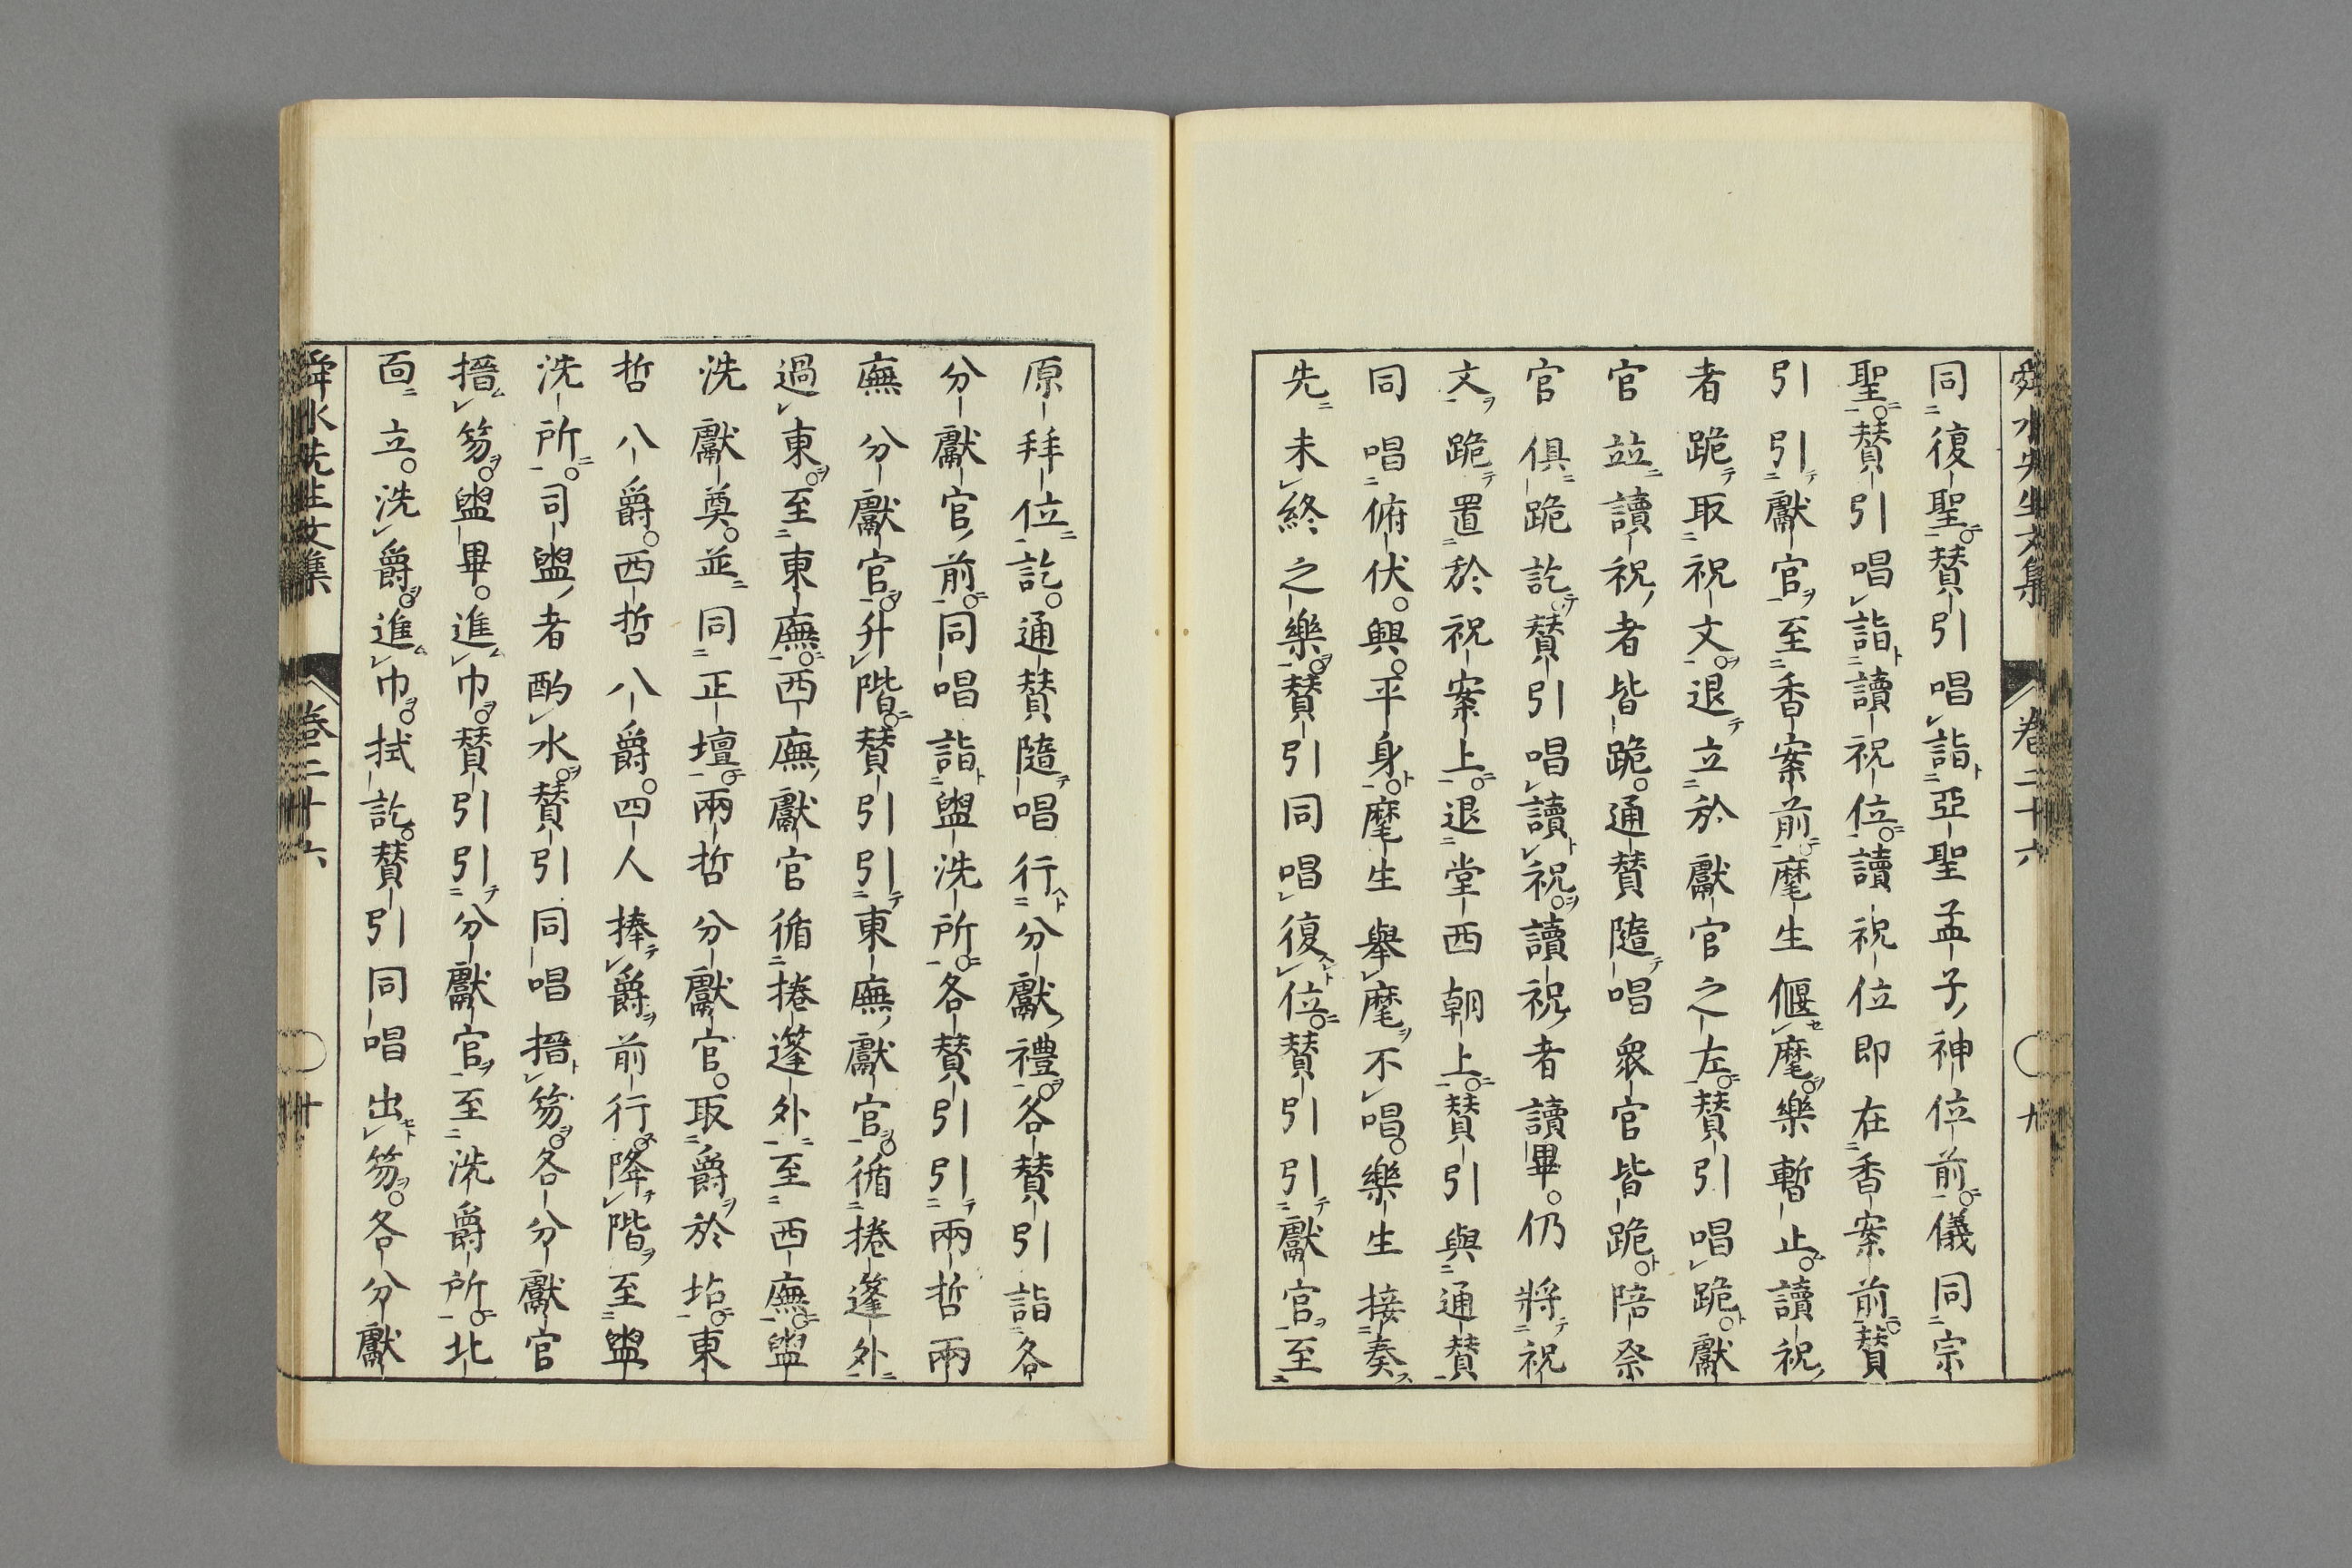 舜水先生文集 卷二十六
同復聖。贊引唱詣亞聖孟子神位前。儀同宗
聖。贊引唱詣讀祝位。讀祝位即在香案前。贊
引引獻官至香案前。麾生偃麾。樂暫止。讀祝
者跪取祝文。退立於獻官之左。贊引唱跪。獻
官並讀祝者皆跪。通贊隨唱衆官皆跪。陪祭
官俱跪訖。贊引唱讀祝。讀祝者讀畢。仍將祝
文跪置於祝案上。退堂西朝上。贊引與通贊
同唱俯伏。興。平身。麾生舉麾不唱。樂生接奏
先未終之樂。贊引同唱復位。贊引引獻官至
原拜位訖。通贊隨唱行分獻禮。各贊引詣各
分獻官前。同唱詣盥洗所。各贊引引兩哲兩
廡分獻官升階。贊引引東廡獻官。循捲蓬外
過東。至東廡。西廡獻官循捲蓬外至西廡。盥
洗獻奠。並同正壇。兩哲分獻官。取爵於坫。東
哲八爵。西哲八爵。四人捧爵前行。降階至盥
洗所。司盥者酌水。贊引同唱搢笏。各分獻官
搢笏。盥畢。進巾。贊引引分獻官至洗爵所。北
面立。洗爵。進巾。拭訖。贊引同唱出笏。各分獻
舜水先生文集 卷二十六 廿